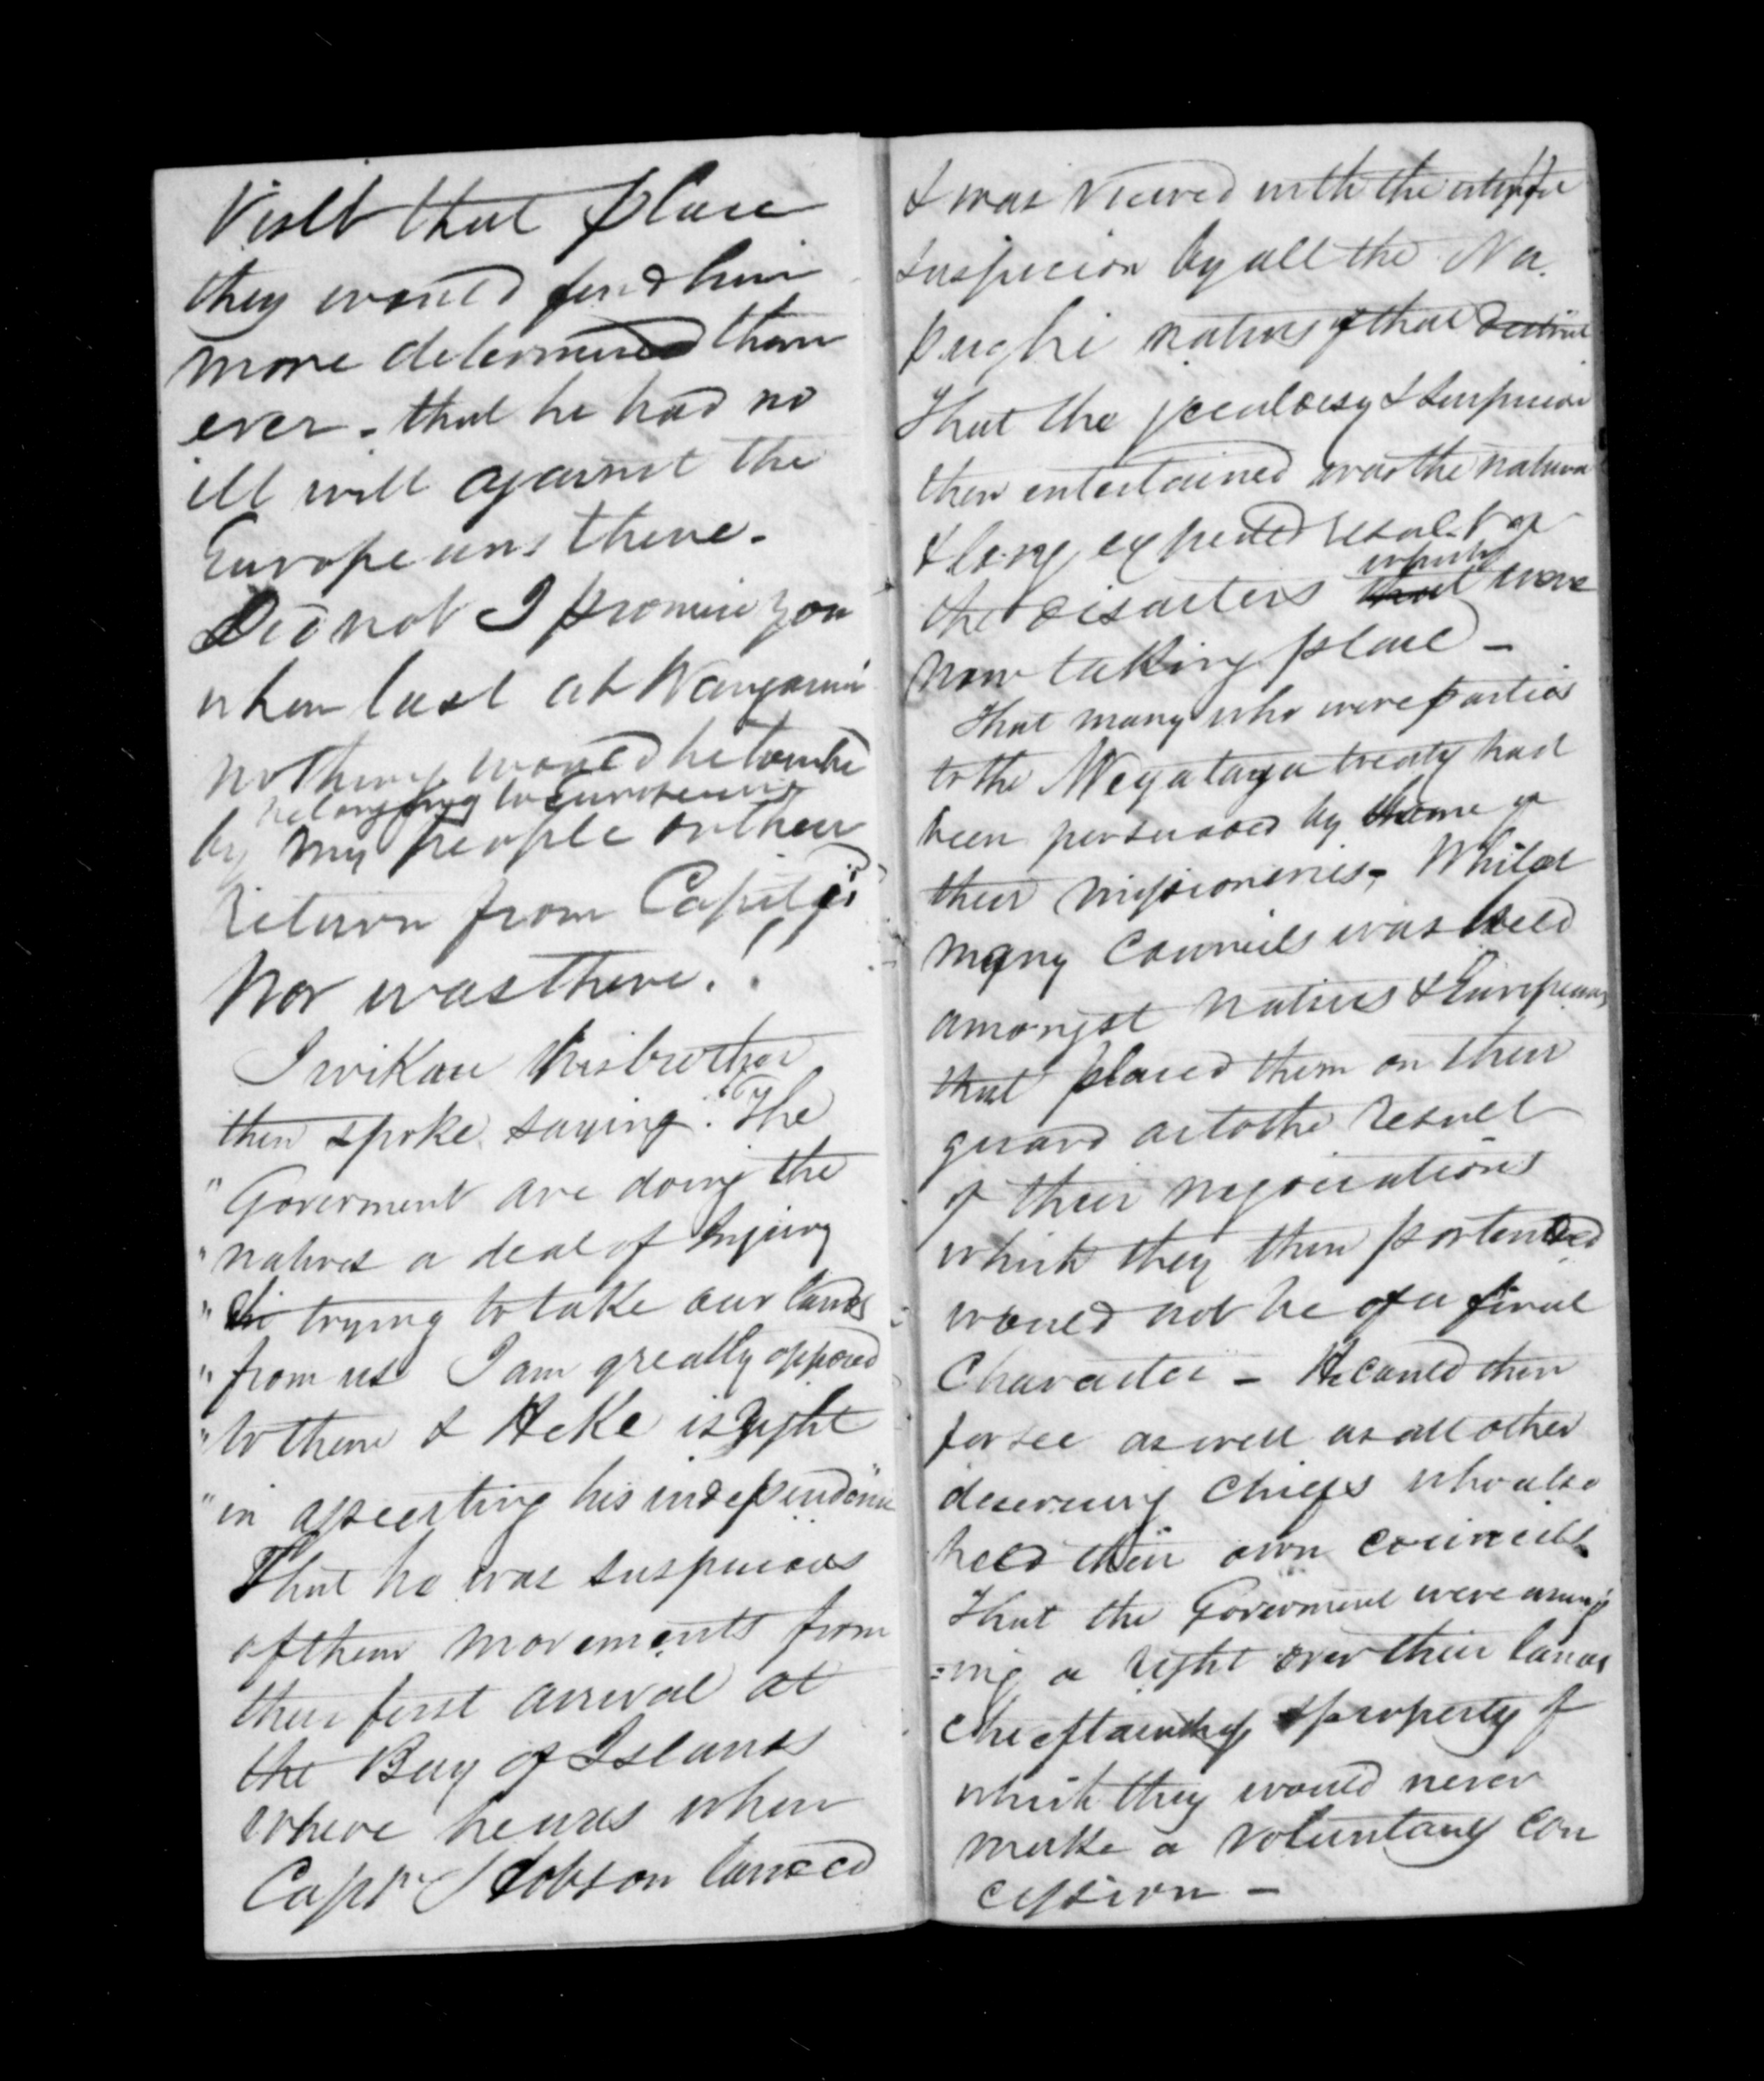 Visit that place
they would find him
more determined than
ever - that he had no
ill will against the
Europeans there -
Did not I promise you
when last at Wanganui
nothing would be touched
belonging to Europeans
by my people on their
return from Capiti
Nor was there!!
Iwikau his brother
then spoke saying. "The
" Goverment are doing the
" natives a deal of injury
" trying to take our lands
" from us I am greatly opposed
" to them & Heke is right
" in asserting his independence"
That he was suspicious
of their movements from
their first arrival at
the Bay of Islands
where he was when
Captn Hobson landed
& was viewed with the
suspicion by all the Na
pughi natives of that
That the jealousy & suspicion
then entertained was the natural
& long expected result of
which
the disasters that were
now taking place -
That many who were parties
to the treaty had
been persuaded by of
their missioneries - Whilst
many Councils was held
amongst natives & Europeans
that placed them on their
guard as to the result
of their negociations
which they then portended
would not be of a final
Character - He could then
forsee as well as all other
deserning Chiefs who also
held their own councils
That the Goverment were
=ing a right over their lands
Chieftainship & property of
which they would never
make a voluntary con
cession -